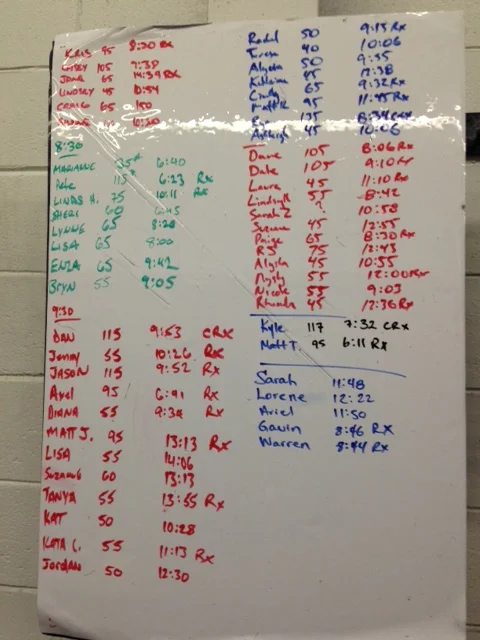 KRIS 95 8:30 Rx
COREY 105 7:38
JANE 65 14:39 Rx
LINDSEY 45 10:54
CRAIG 65
10:30
8:30
MARIANNE 35# 6:40
Pete 115# 6:23 Rx
LINDS H. 75 10:11 Rx
SHERI 60 6:45
LYNNE 65 8:28
LISA 65 8:00
ENZA 65 9:42
BRYN 55 9:05
9:30
DAN 115 9:53 CRx
Jenny 55 10:26 Rx
JASON 115 9:52 Rx
Axel 95 6:41 Rx
DIANA 55 9:34 Rx
MATT J. 95 13:13 Rx
LISA 55 14:06
Suzanne 60 13:13
TANYA 55 13:55 Rx
KAT 50 10:28
KATA C. 55 11:13 Rx
Jordan 50 12:30
Rachel 50 9:15 Rx
Teresa 40 10:06
Alyssa 50 9:35
45 12:38
Cindy 65 9:32 Rx
Matt R. 95 11:45 Rx
135 8:34 Rx
Ashleigh 45 10:06
Dave 105 8:06 Rx
Dale 105 9:10 Rx
Laura 45 11:10 Rx
Lindsay 55 8:42
Sarah Z ? 10:58
Suzanne 45 12:55
Paige 65 8:30 Rx
RJ 75 12:43
Alysha 45 10:55
55 12:00 Rx
Nicole 55 9:03
Rhonda 45 12:36 Rx
Kyle 117 7:32 CRx
Matt T. 95 6:11 Rx
Sarah 11:48
Lorene 12:22
Ariel 11:50
Gavin 8:46 Rx
Warren 8:44 Rx